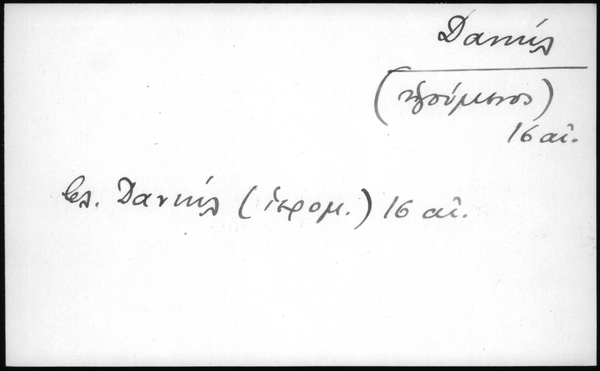 Δανιήλ
(ἡγούμενος)
16 αἰ.
βλ. Δανιήλ (ἱερομ.) 16 αἰ.